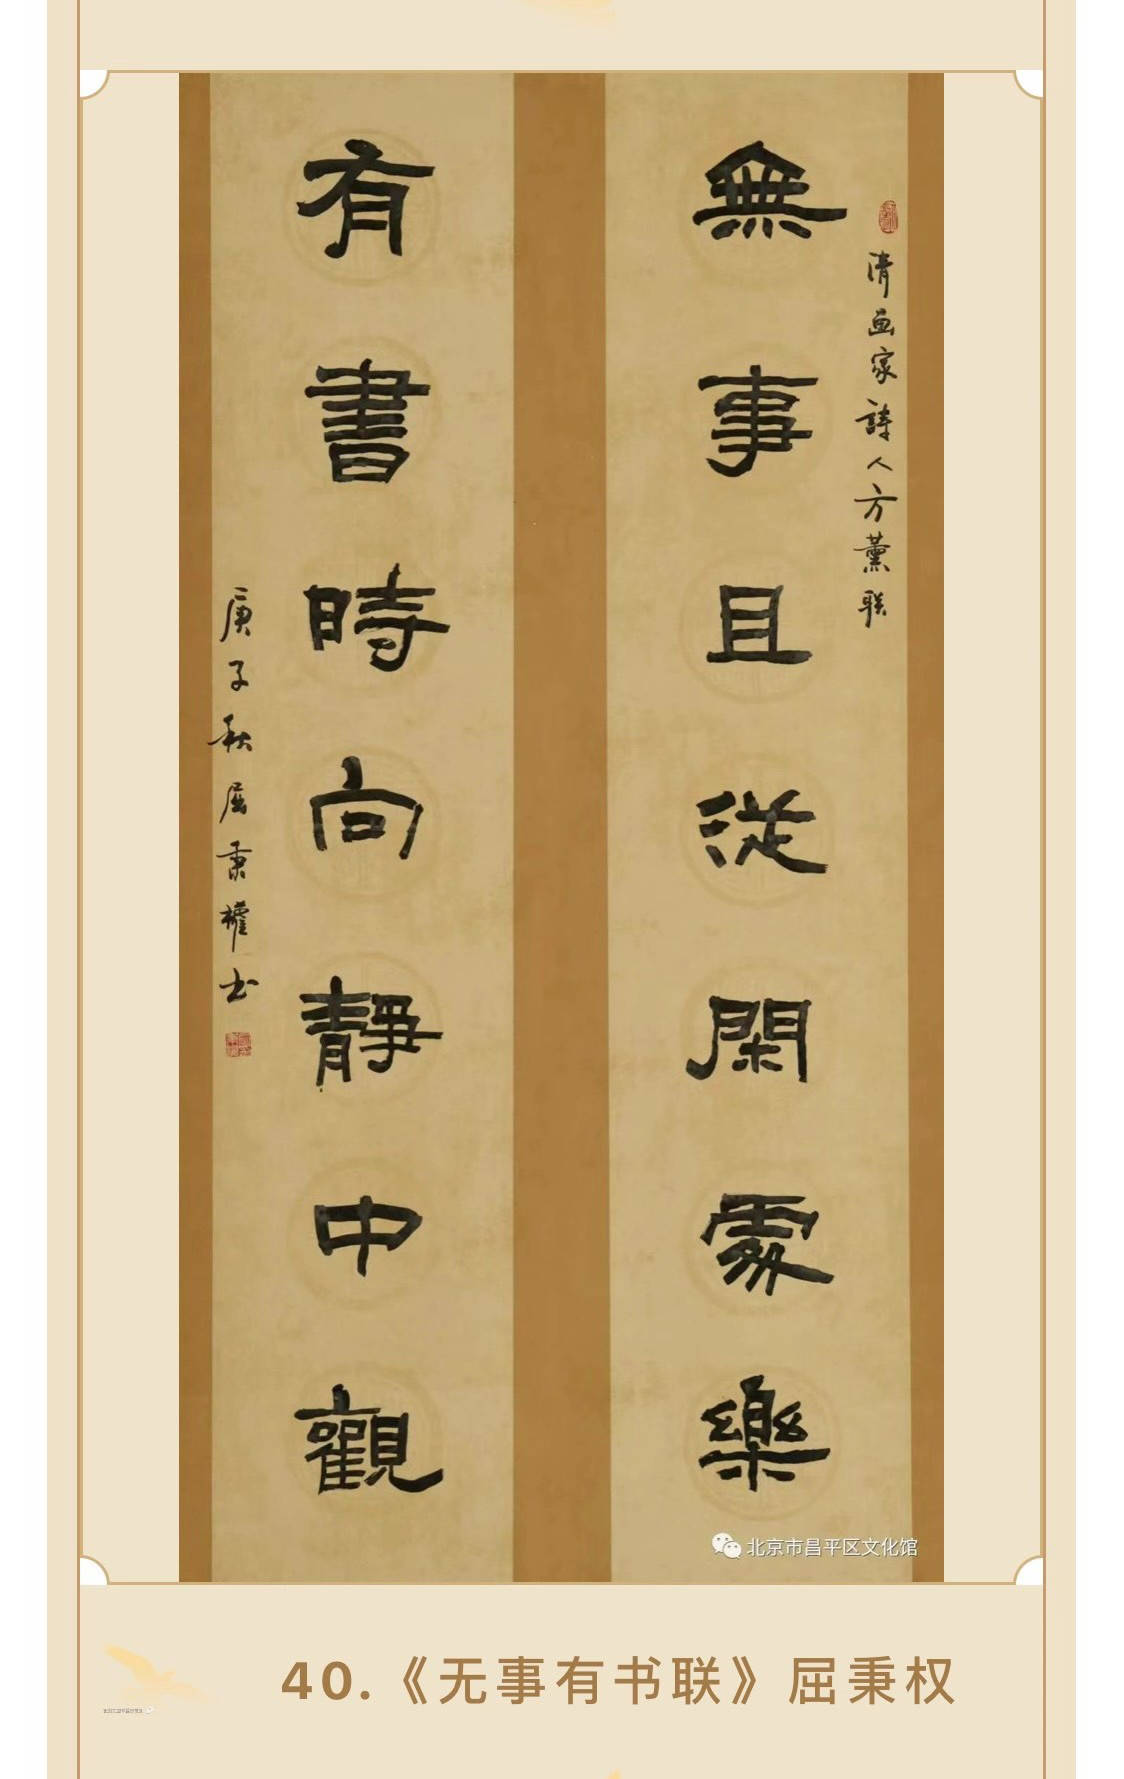 無事且從閑處樂
清画家詩人方薰联
有書時向靜中觀
庚子秋屈秉權书
北京市昌平区文化馆
40.《无事有书联》屈秉权